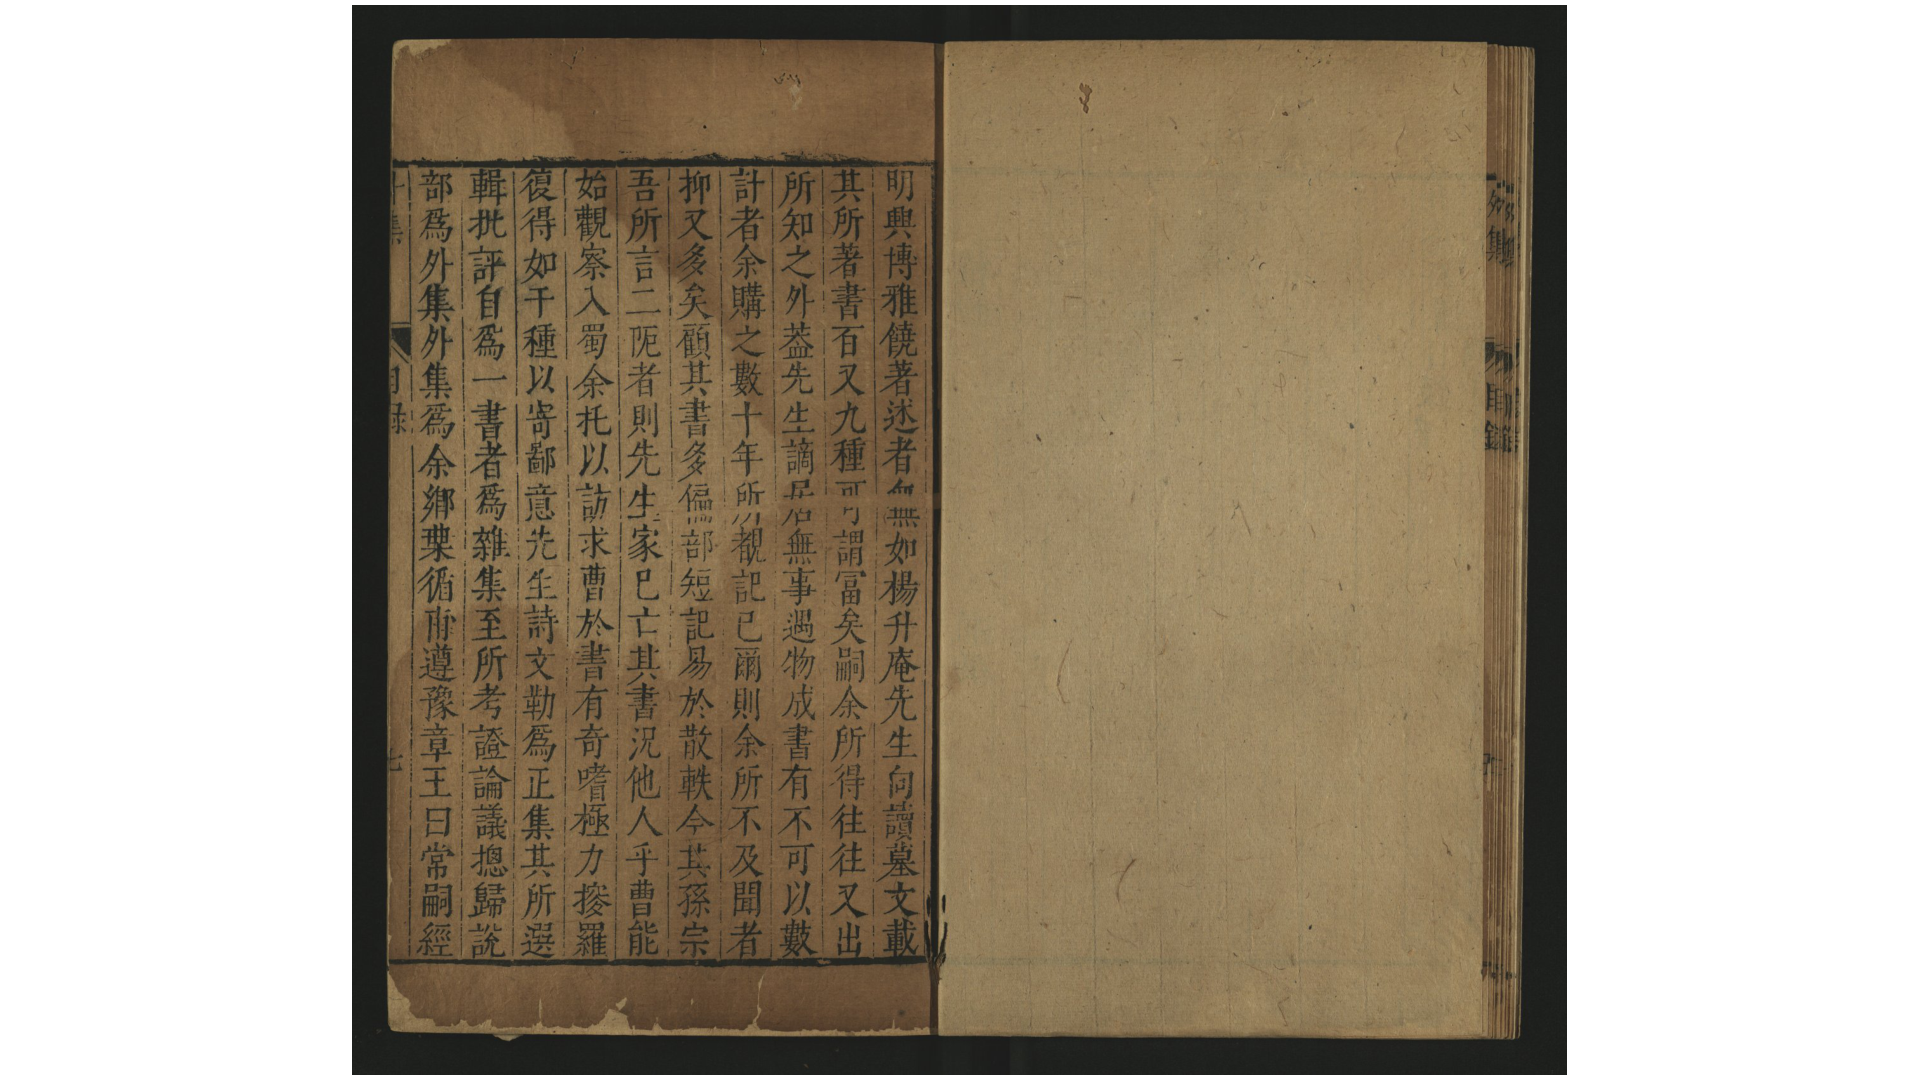 明興博雅饒著述者無如楊升庵先生向讀墓文載
其所著書百又九種可謂冨矣嗣余所得往往又出
所知之外葢先生謫居無事遇物成書有不可以數
計者余購之數十年所覩記已爾則余所不及聞者
抑又多矣顧其書多偏部短記易於散軼今其孫宗
吾所言二阨者則先生家已亡其書況他人乎曹能
始觀察入蜀余托以訪求曹於書有奇嗜極力搜羅
復得如干種以寄鄙意先生詩文勒爲正集其所選
輯批評自爲一書者爲雜集至所考證論議摠歸說
部爲外集外集爲余鄉栗循甫遵豫章王曰常嗣經
外集
目録
七
外集
目録